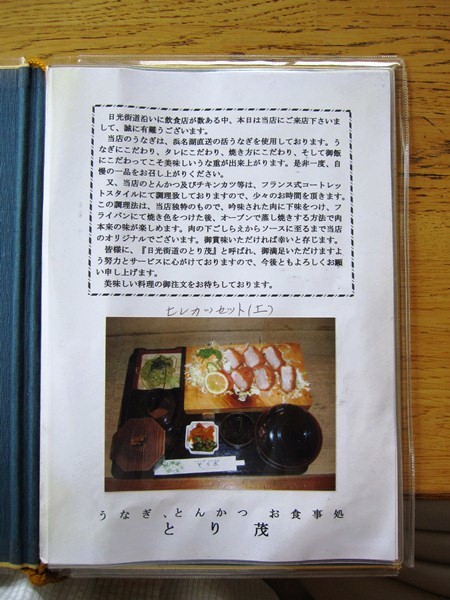 日光街道沿いに飲食店が数ある中、本日は当店にご来店下さいま
して、誠に有難うございます。
当店のうなぎは、浜名湖直送の活うなぎを使用しております。う
なぎにこだわり、タレにこだわり、焼き方にこだわり、そして御飯
にこだわってこそ美味しいうな重が出来上がります。是非一度、自
慢の一品をお召し上がりください。
又、当店のとんかつ及びチキンカツ等は、フランス式コートレッ
トスタイルにて調理致しておりますので、少々のお時間を頂きます。
この調理法は、当店独特のもので、吟味された肉に下味をつけ、フ
ライパンにて焼き色をつけた後、オーブンで蒸し焼きする方法で肉
本来の味が楽しめます。肉の下ごしらえからソースに至るまで当店
のオリジナルでございます。御賞味いただければ幸いと存じます。
皆様に、『日光街道のとり茂』と呼ばれ、御満足いただけますよ
う努力とサービスに心がけておりますので、今後ともよろしくお願
い申し上げます。
美味しい料理の御注文をお待ちしております。
ヒレカツセット(上)
うなぎ、とんかつ お食事処
とり茂